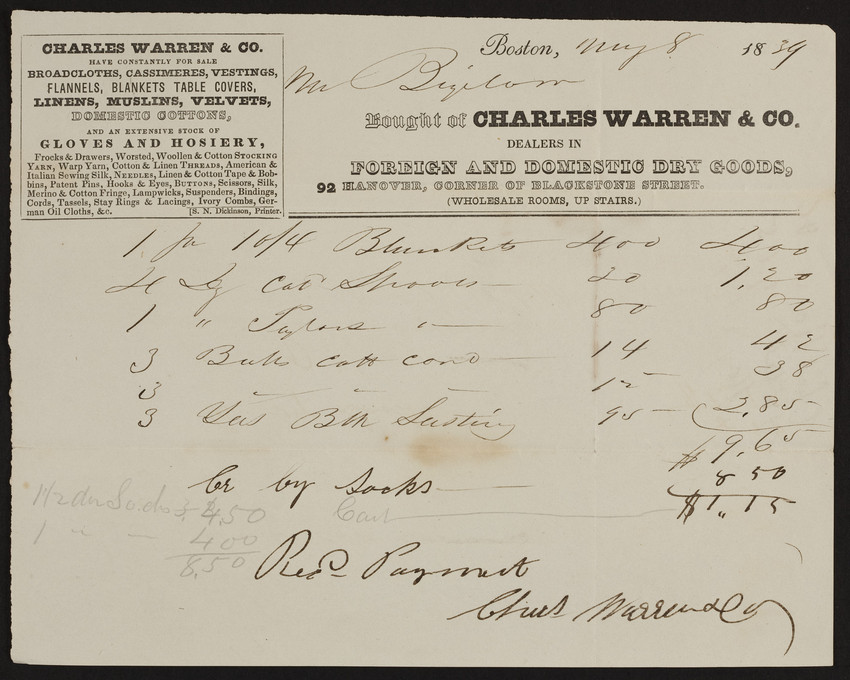 CHARLES WARREN & CO.
HAVE CONSTANTLY FOR SALE
BROADCLOTHS, CASSIMERES, VESTINGS,
FLANNELS, BLANKETS TABLE COVERS,
LINENS, MUSLINS, VELVETS,
DOMESTIC COTTONS,
AND AN EXTENSIVE STOCK OF
GLOVES AND HOSIERY,
Frocks & Drawers, Worsted, Woollen & Cotton STOCKING
YARN, Warp Yarn, Cotton & Linen THREADS, American &
Italian Sewing Silk, NEEDLES, Linen & Cotton Tape & Bob-
bins, Patent Pins, Hooks & Eyes, BUTTONS, Scissors, Silk,
Merino & Cotton Fringe, Lampwicks, Suspenders, Bindings,
Cords, Tassels, Stay Rings & Lacings, Ivory Combs, Ger-
man Oil Cloths, &c. [S. N. Dickinson, Printer.
Boston, May 8 1839
Mr Bigelow
Bought of CHARLES WARREN & CO.
DEALERS IN
FOREIGN AND DOMESTIC DRY GOODS,
92 HANOVER, CORNER OF BLACKSTONE STREET.
(WHOLESALE ROOMS, UP STAIRS.)
1 pr 10/4 Blankets 400 400
4 Dz Cott Spools 30 1,20
1 " Taylors " 80 80
3 Balls Cott Cord 14 42
3 — — — 12 38
3 Yds Blk Lasting 95 2,85
$9,65
Cr by Socks 8 50
Cash $1,,15
1 1/2 dz Socks 4,50
1 " — 400
8,50
Recd Payment
Chas Warren & Co